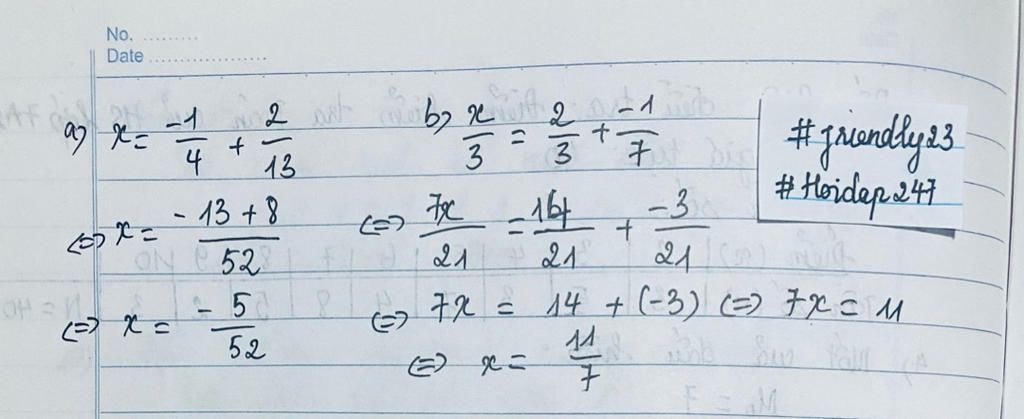 No. ..........
Date ....................
a) x = -1/4 + 2/13
⇔ x = (-13 + 8)/52
⇔ x = -5/52
b) x/3 = 2/3 + -1/7
⇔ 7x/21 = 14/21 + -3/21
⇔ 7x = 14 + (-3) ⇔ 7x = 11
⇔ x = 11/7
#friendly23
#Hoidap247